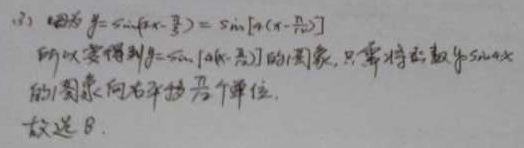 (3) 因为 y=sin(4x-π/3)=sin[4(x-π/12)]
所以要得到y=sin[4(x-π/12)]的图象,只需将函数y=sin4x
的图象向右平移π/12个单位.
故选B.